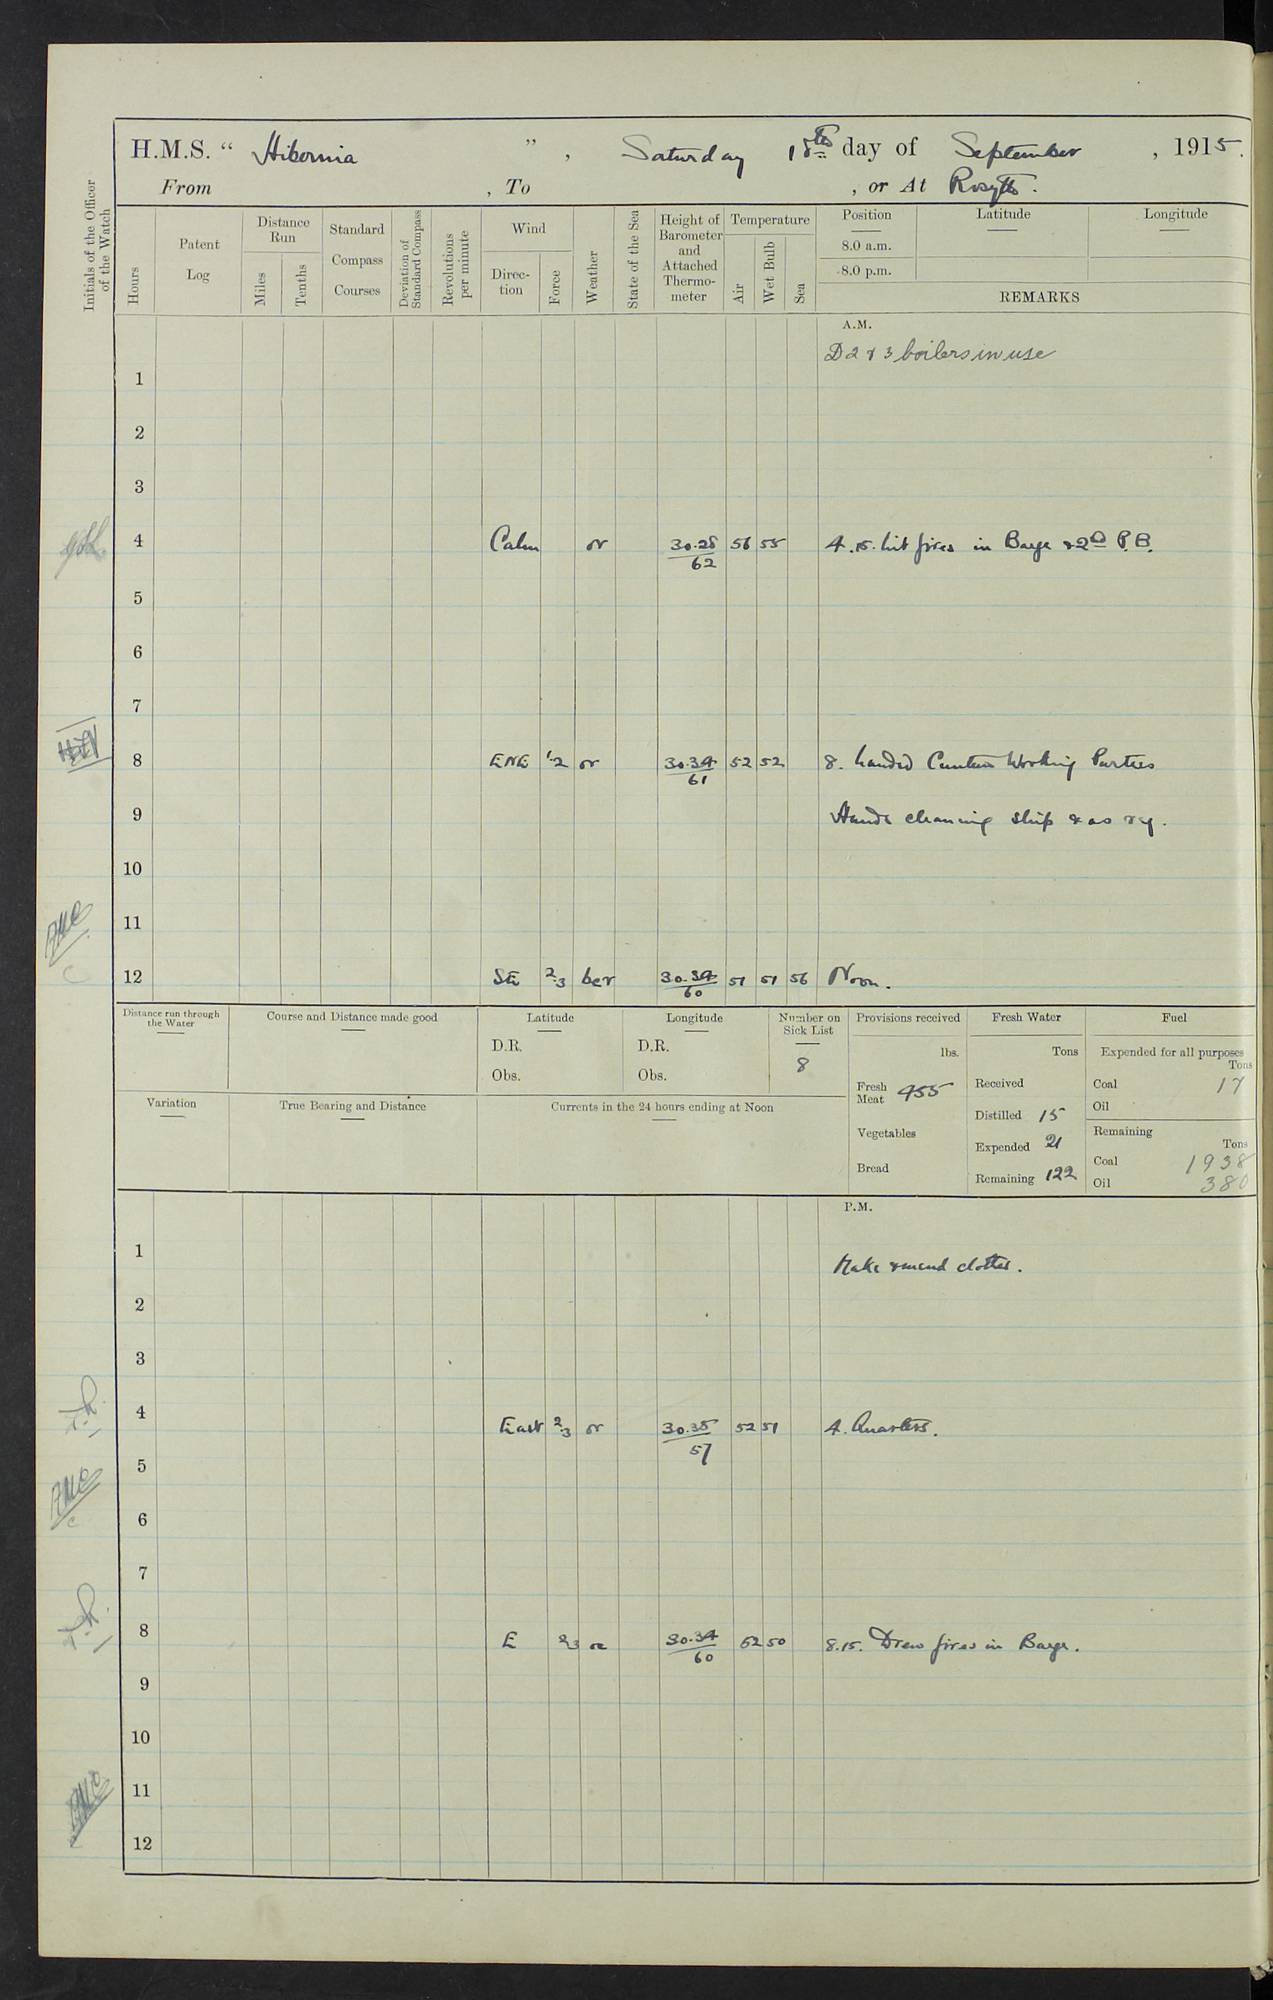 H.M.S. “ Hibernia ” , Saturday 18th day of September , 1915.
From , To , or At Rosyth.
Initials of the Officer of the Watch
Hours
Patent Log
Distance Run
Miles
Tenths
Standard Compass Courses
Deviation of Standard Compass
Revolutions per minute
Wind
Direc-tion
Force
Weather
State of the Sea
Height of Barometer and Attached Thermo-meter
Temperature
Air
Wet Bulb
Sea
Position
8.0 a.m.
8.0 p.m.
Latitude
Longitude
REMARKS
A.M.
D 2 & 3 boilers in use
1
2
3
4 Calm or 30.28/62 56 55 4.15. Lit fires in Barge & 2nd P.B.
5
6
7
8 ENE 1-2 or 30.34/61 52 52 8. Landed Canteen Working Parties
9 Hands cleaning ship & as req.
10
11
12 SE 2-3 bcr 30.34/60 51 51 56 Noon.
Distance run through the Water
Course and Distance made good
Latitude
D.R.
Obs.
Longitude
D.R.
Obs.
Number on Sick List
8
Provisions received
lbs.
Fresh Meat 455
Vegetables
Bread
Fresh Water
Tons
Received
Distilled 15
Expended 21
Remaining 122
Fuel
Expended for all purposes
Tons
Coal 17
Oil
Remaining
Tons
Coal 1938
Oil 380
Variation
True Bearing and Distance
Currents in the 24 hours ending at Noon
P.M.
1 Make & mend clothes.
2
3
4 East 2-3 or 30.35/57 52 51 4. Quarters.
5
6
7
8 E 2-3 oc 30.34/60 52 50 8.15. Drew fires in Barge.
9
10
11
12